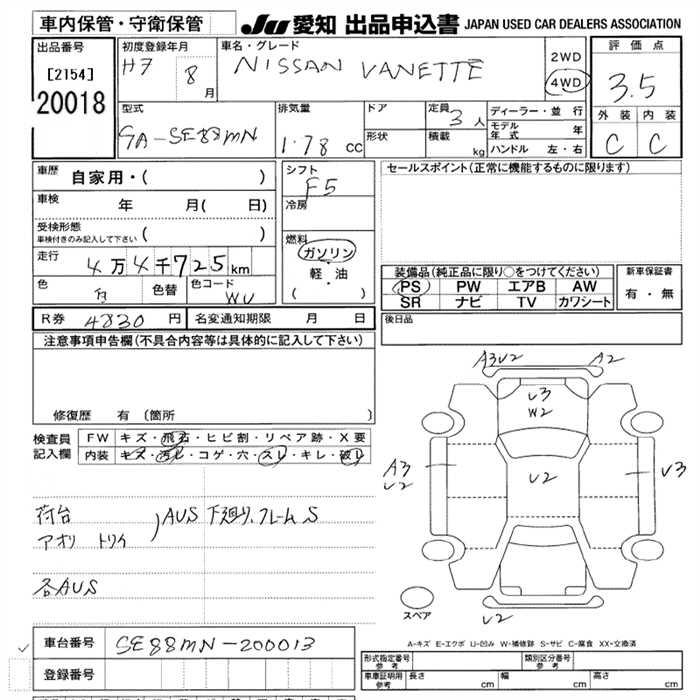 車内保管・守衛保管
JU 愛知 出品申込書 JAPAN USED CAR DEALERS ASSOCIATION
出品番号
[2154]
20018
初度登録年月
H7 8 月
車名・グレード
NISSAN VANETTE
2WD
4WD
評価点
3.5
外装 内装
C C
型式
GA-SE88MN
排気量
1.78 cc
ドア
形状
定員 3 人
積載 kg
ディーラー・並行
モデル年式 年
ハンドル 左・右
車歴
自家用・( )
車検
年 月( 日)
受検形態
車検付きのみ記入して下さい ( )
走行
4万4千725km
色
白
色替
色コード
WU
シフト
F5
冷房
燃料
ガソリン
軽・油
( )
セールスポイント(正常に機能するものに限ります)
装備品(純正品に限り○をつけてください)
PS PW エアB AW
SR ナビ TV カワシート
新車保証書
有・無
R券 4830 円 名変通知期限 月 日
後日品
注意事項申告欄(不具合内容等は具体的に記入して下さい)
修復歴 有 (箇所 )
検査員記入欄
FW キズ・飛石・ヒビ割・リペア跡・X要
内装 キズ・汚レ・コゲ・穴・スレ・キレ・破レ
荷台
アオリ トリイ
) AUS 下廻り、フレームS
各AUS
A3U2 A2
U3
W2
A3
U2
U2
U3
U2
スペア
A-キズ E-エクボ U-凹み W-補修跡 S-サビ C-腐食 XX-交換済
車台番号 SE88MN-200013
登録番号
形式指定番号 参考
類別区分番号 参考
車車証明用 参考 長さ cm 幅 cm 高さ cm